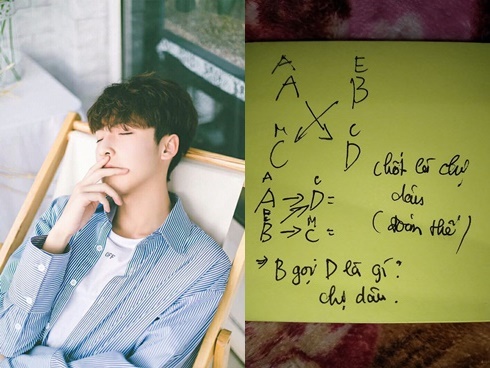 A E
A B
M C
C D
A C
A → D =
B E M
B → C =
chốt là chị
dâu
(đoán thế)
⇒ B gọi D là gì?
chị dâu.